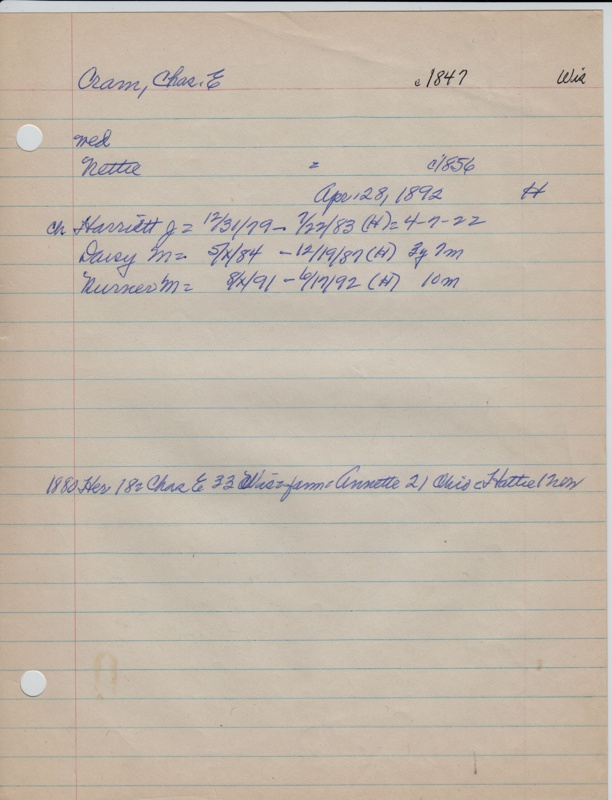 Cram, Chas. E c1847 Wis
med
Nettie = c1856
Apr. 28, 1892 H
ch Harriett J = 12/31/79 - 7/22/83 (H) = 4-7-22
Daisy M = 5/x/84 - 12/19/87 (H) 3y 7m
"Burner" M = 8/x/91 - 6/17/92 (H) 10m
1880 Her 18 = Chas E 33 Wis = farm = Annette 21 Ohio = Hattie